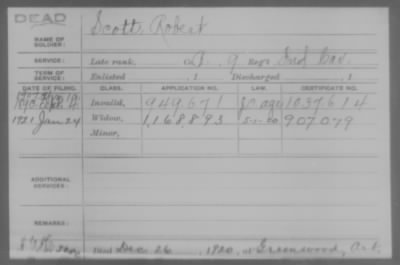 DEAD
NAME OF SOLDIER: Scott, Robert
SERVICE: Late rank, Co. G. 9 Reg't Ind Cav.
TERM OF SERVICE: Enlisted , 1 Discharged , 1
DATE OF FILING. CLASS. APPLICATION NO. LAW. CERTIFICATE NO.
Invalid, 949,671 1037614
1921 Jan 24 Widow, 1,168,893 907079
Minor,
ADDITIONAL SERVICES:
REMARKS:
Died Dec 26, 1920, at Greenwood,